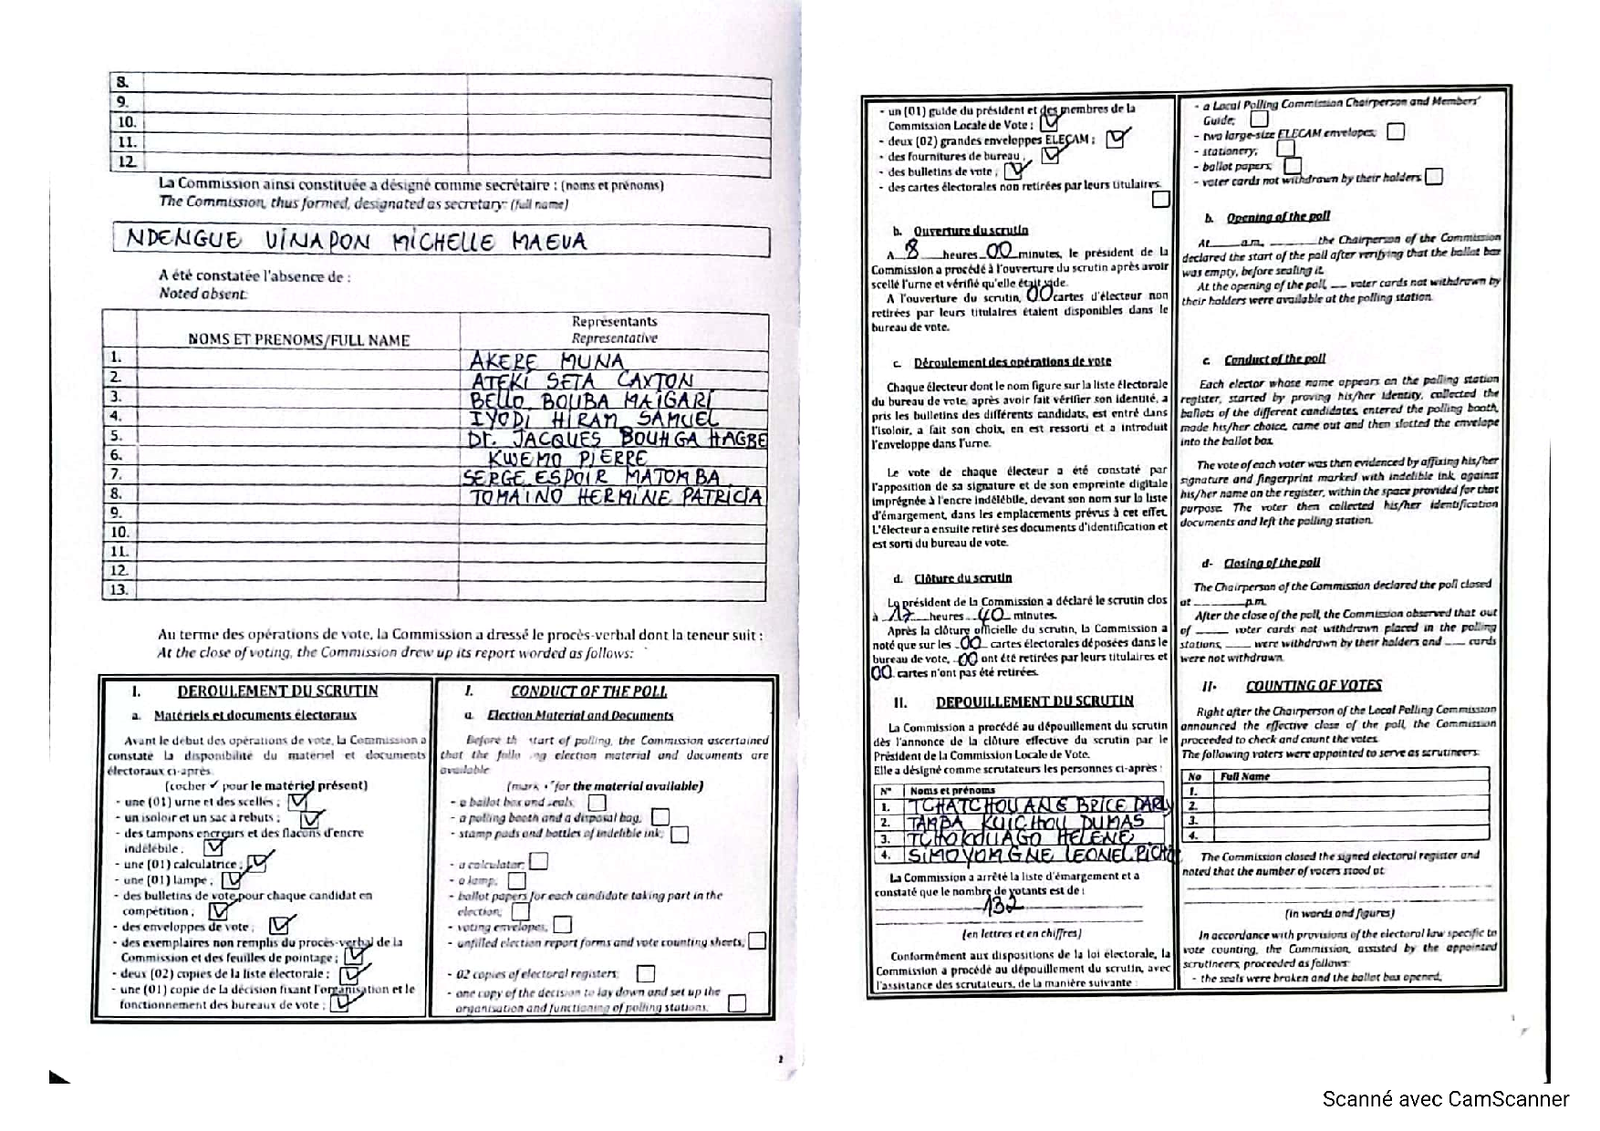 8.
9.
10.
11.
12.
La Commission ainsi constituée a désigné comme secrétaire : (noms et prénoms)
The Commission, thus formed, designated as secretary: (full name)
NDENGUE VINAPON MICHELLE MAEVA
A été constatée l'absence de :
Noted absent:
NOMS ET PRENOMS/FULL NAME
Représentants
Representative
1. AKERE MUNA
2. ATEKI SETA CAXTON
3. BELLO BOUBA MAIGARI
4. IYODI HIRAM SAMUEL
5. Dr. JACQUES BOUHGA HAGBE
6. KWEMO PIERRE
7. SERGE ESPOIR MATOMBA
8. TOMAINO HERMINE PATRICIA
9.
10.
11.
12.
13.
Au terme des opérations de vote, la Commission a dressé le procès-verbal dont la teneur suit :
At the close of voting, the Commission drew up its report worded as follows:
I. DEROULEMENT DU SCRUTIN
a. Matériels et documents électoraux
Avant le début des opérations de vote, la Commission a
constaté la disponibilité du matériel et documents
électoraux ci-après.
(cocher ✓ pour le matériel présent)
- une (01) urne et des scellés ;
- un isoloir et un sac à rebuts ;
- des tampons encreurs et des flacons d'encre
indélébile ;
- une (01) calculatrice ;
- une (01) lampe ;
- des bulletins de vote pour chaque candidat en
compétition ;
- des enveloppes de vote ;
- des exemplaires non remplis du procès-verbal de la
Commission et des feuilles de pointage ;
- deux (02) copies de la liste électorale ;
- une (01) copie de la décision fixant l'organisation et le
fonctionnement des bureaux de vote ;
I. CONDUCT OF THE POLL
a. Election Material and Documents
Before th start of polling, the Commission ascertained
that the follo ng election material and documents are
available
(mark for the material available)
- a ballot box and seals;
- a polling booth and a disposal bag,
- stamp pads and bottles of indelible ink;
- a calculator;
- a lamp;
- ballot papers for each candidate taking part in the
election;
- voting envelopes,
- unfilled election report forms and vote counting sheets;
- 02 copies of electoral registers;
- one copy of the decision to lay down and set up the
organisation and functioning of polling stations.
2
- un (01) guide du président et des membres de la
Commission Locale de Vote ;
- deux (02) grandes enveloppes ELECAM ;
- des fournitures de bureau ;
- des bulletins de vote ;
- des cartes électorales non retirées par leurs titulaires.
b. Ouverture du scrutin
A 8 heures 00 minutes, le président de la
Commission a procédé à l'ouverture du scrutin après avoir
scellé l'urne et vérifié qu'elle était vide.
A l'ouverture du scrutin, 00 cartes d'électeur non
retirées par leurs titulaires étaient disponibles dans le
bureau de vote.
c. Déroulement des opérations de vote
Chaque électeur dont le nom figure sur la liste électorale
du bureau de vote, après avoir fait vérifier son identité, a
pris les bulletins des différents candidats, est entré dans
l'isoloir, a fait son choix, en est ressorti et a introduit
l'enveloppe dans l'urne.
Le vote de chaque électeur a été constaté par
l'apposition de sa signature et de son empreinte digitale
imprégnée à l'encre indélébile, devant son nom sur la liste
d'émargement, dans les emplacements prévus à cet effet.
L'électeur a ensuite retiré ses documents d'identification et
est sorti du bureau de vote.
d. Clôture du scrutin
Le président de la Commission a déclaré le scrutin clos
à 17 heures 40 minutes.
Après la clôture officielle du scrutin, la Commission a
noté que sur les 00 cartes électorales déposées dans le
bureau de vote, 00 ont été retirées par leurs titulaires et
00 cartes n'ont pas été retirées.
II. DEPOUILLEMENT DU SCRUTIN
La Commission a procédé au dépouillement du scrutin
dès l'annonce de la clôture effective du scrutin par le
Président de la Commission Locale de Vote.
Elle a désigné comme scrutateurs les personnes ci-après :
N° Noms et prénoms
1. TCHATCHOUANG BRICE DARLY
2. TAMBA KUICHOU DUMAS
3. TCHOKOUAGO HELENE
4. SIMO YOMGNE LEONEL
La Commission a arrêté la liste d'émargement et a
constaté que le nombre de votants est de :
132
(en lettres et en chiffres)
Conformément aux dispositions de la loi électorale, la
Commission a procédé au dépouillement du scrutin, avec
l'assistance des scrutateurs, de la manière suivante :
- a Local Polling Commission Chairperson and Members'
Guide;
- two large-size ELECAM envelopes;
- stationery;
- ballot papers;
- voter cards not withdrawn by their holders.
b. Opening of the poll
At____a.m, ______the Chairperson of the Commission
declared the start of the poll after verifying that the ballot box
was empty, before sealing it.
At the opening of the poll, ___ voter cards not withdrawn by
their holders were available at the polling station.
c. Conduct of the poll
Each elector whose name appears on the polling station
register, started by proving his/her identity, collected the
ballots of the different candidates, entered the polling booth,
made his/her choice, came out and then slotted the envelope
into the ballot box.
The vote of each voter was then evidenced by affixing his/her
signature and fingerprint marked with indelible ink, against
his/her name on the register, within the space provided for that
purpose. The voter then collected his/her identification
documents and left the polling station.
d- Closing of the poll
The Chairperson of the Commission declared the poll closed
at ________p.m.
After the close of the poll, the Commission observed that out
of _____ voter cards not withdrawn placed in the polling
stations, ____ were withdrawn by their holders and ____ cards
were not withdrawn.
II- COUNTING OF VOTES
Right after the Chairperson of the Local Polling Commission
announced the effective close of the poll, the Commission
proceeded to check and count the votes.
The following voters were appointed to serve as scrutineers:
No Full Name
1.
2.
3.
4.
The Commission closed the signed electoral register and
noted that the number of voters stood at:
(in words and figures)
In accordance with provisions of the electoral law specific to
vote counting, the Commission, assisted by the appointed
scrutineers, proceeded as follows:
- the seals were broken and the ballot box opened;
Scanné avec CamScanner